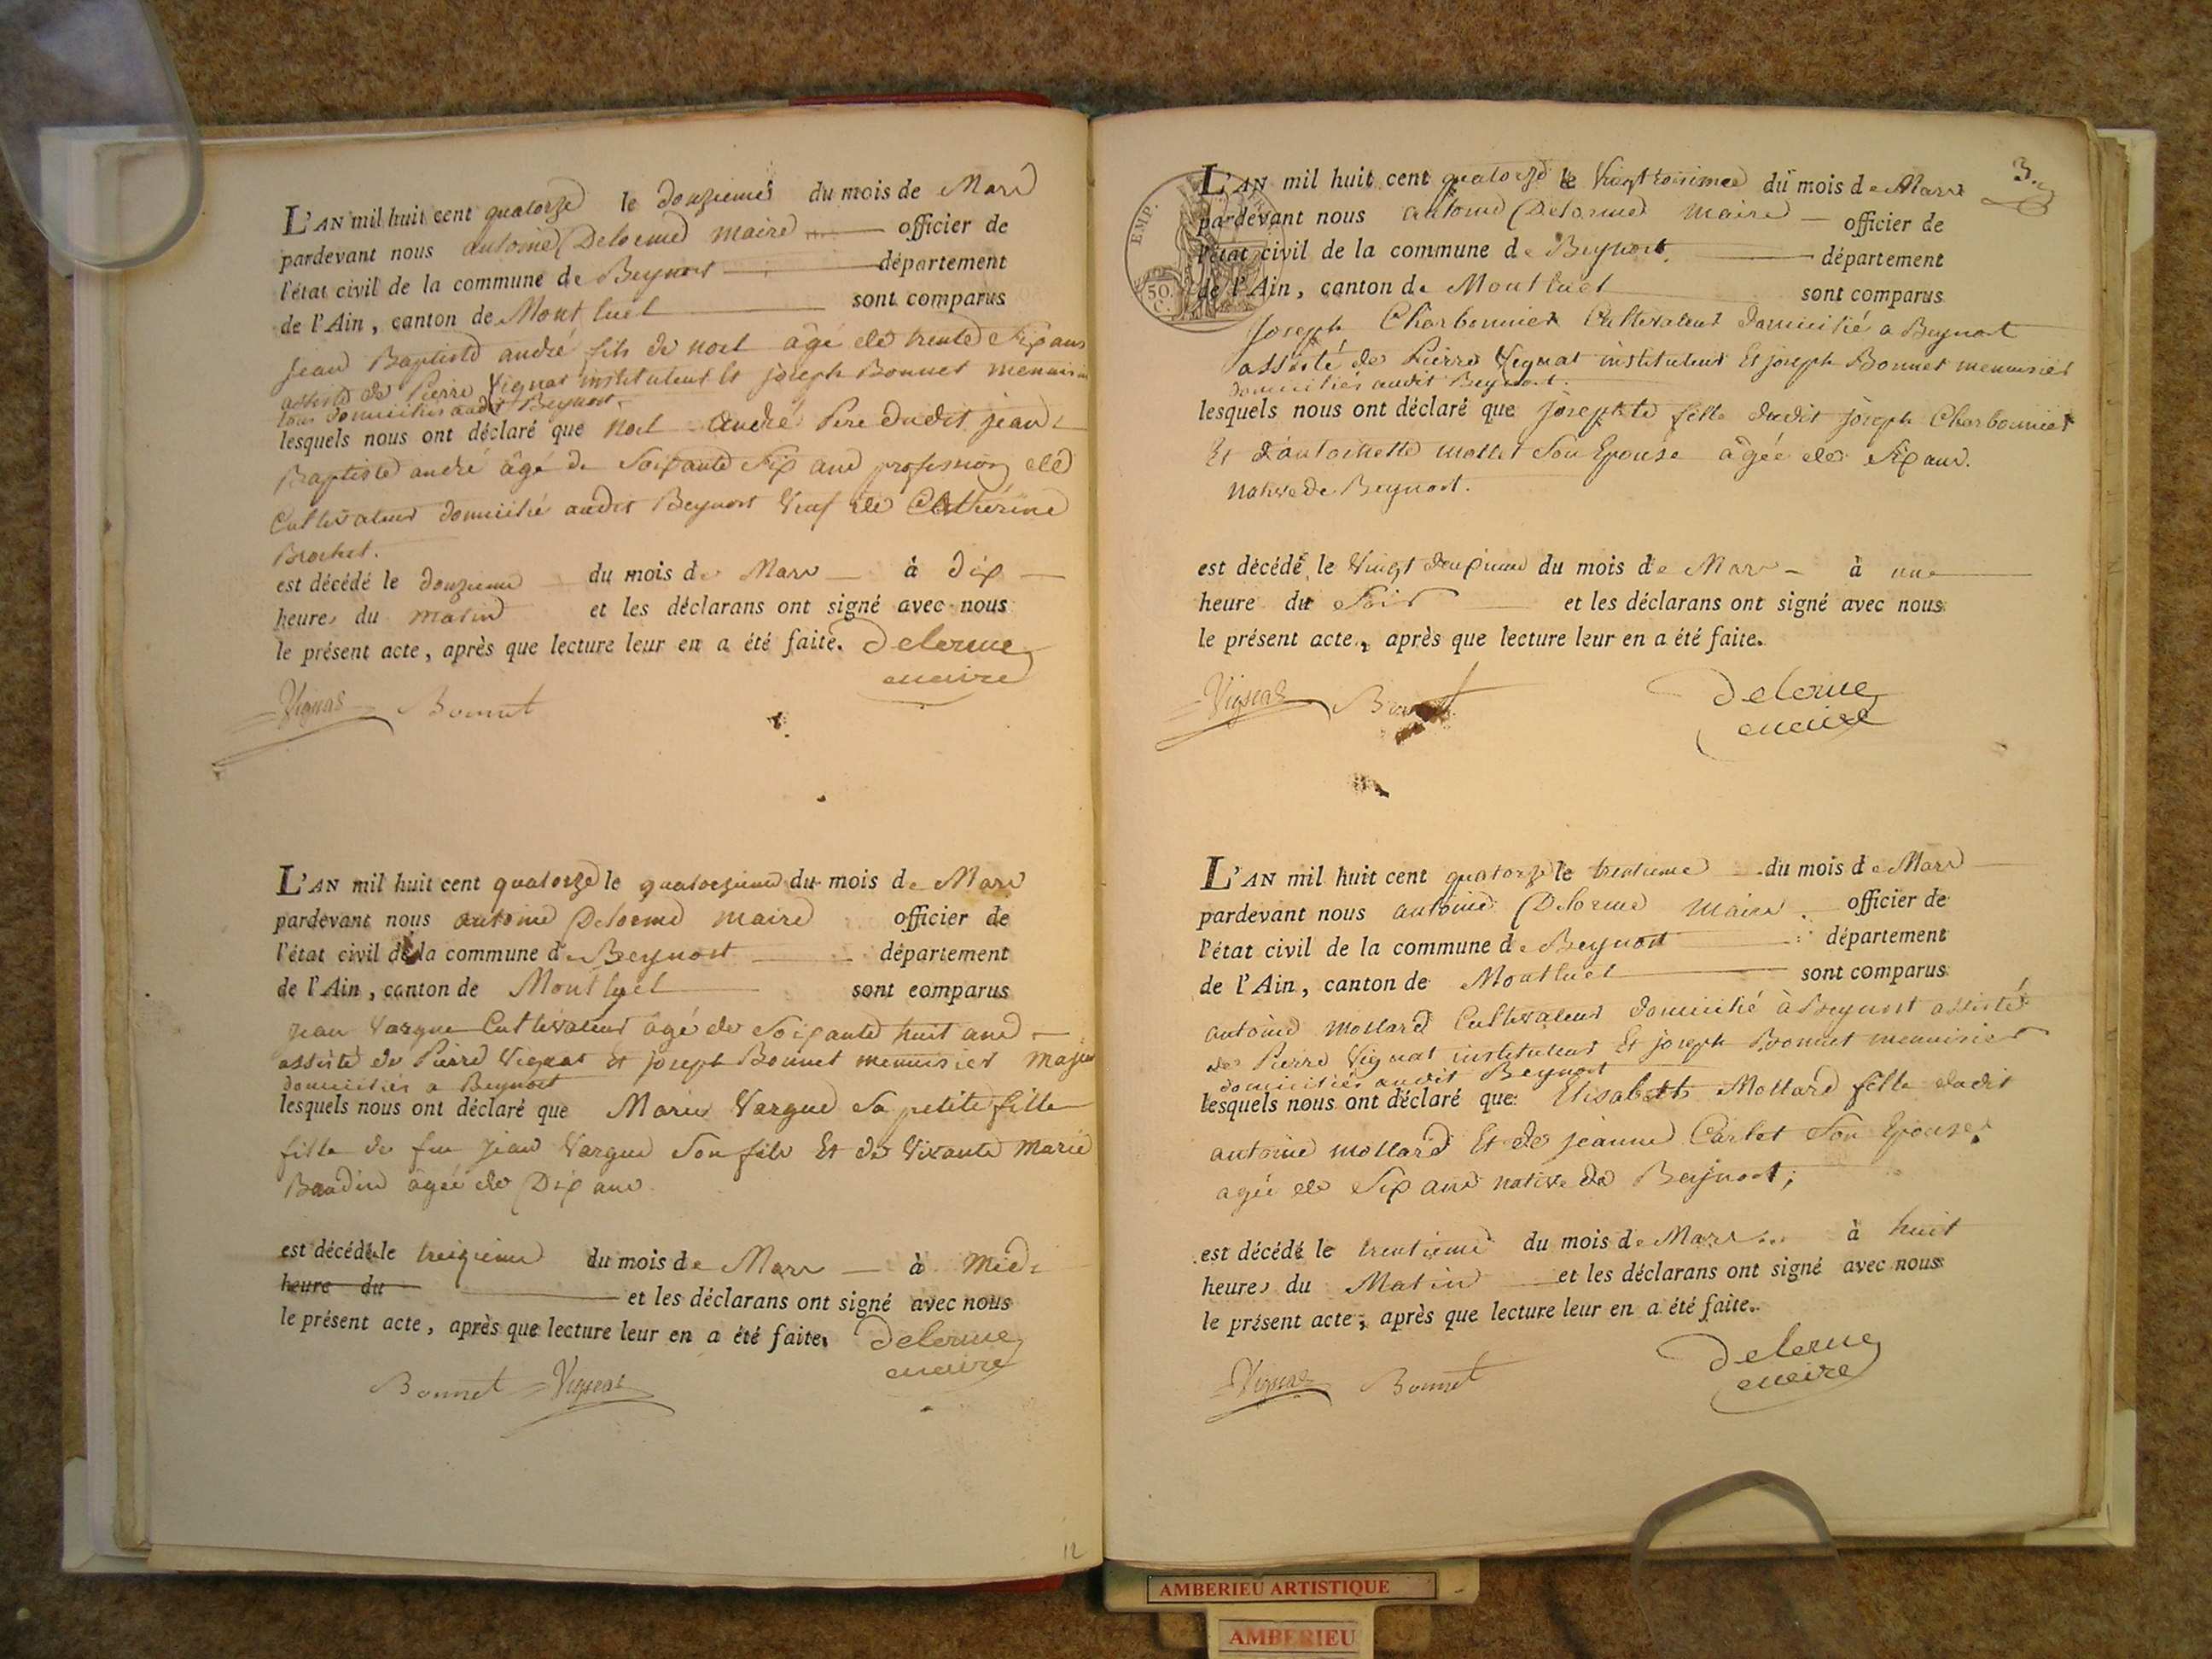 L'AN mil huit cent quatorze le douzieme du mois de Mars
pardevant nous antoine Delorme maire officier de
l'état civil de la commune de Beynost département
de l'Ain, canton de Mont luel sont comparus
jean Baptiste andré fils de noel âgé de trente six ans
assisté de Pierre Vignat instituteur Et joseph Bonnet menuisier
tous domiciliés audit Beynost
lesquels nous ont déclaré que noel andré Pere dudit jean
Baptiste andré âgé de Soixante Six ans profession de
Cultivateur domicilié audit Beynost Veuf de Catherine
Brochet.
est décédé le douzieme du mois de Mars à dix
heures du matin et les déclarans ont signé avec nous
le présent acte, après que lecture leur en a été faite. Delorme
maire
Vignat Bonnet
L'AN mil huit cent quatorze le quatorzieme du mois de Mars
pardevant nous antoine Delorme maire officier de
l'état civil de la commune de Beynost département
de l'Ain, canton de Mont luel sont comparus
jean Vargue Cultivateur âgé de Soixante huit ans
assisté de Pierre Vignat Et joseph Bonnet menuisier Majeurs
domiciliés a Beynost
lesquels nous ont déclaré que Marie Vargue Sa petite fille
fille de feu jean Vargue Son fils Et de Vivante Marie
Baudin âgée de Dix ans
est décédé le treizieme du mois de Mars à Midi
heure du et les déclarans ont signé avec nous
le présent acte, après que lecture leur en a été faite. Delorme
maire
Bonnet Vignat
12
3
EMP.
50.
C.
L'AN mil huit cent quatorze le Vingt troisieme du mois de Mars
pardevant nous antoine Delorme maire officier de
l'état civil de la commune de Beynost département
de l'Ain, canton de Mont luel sont comparus
joseph Charbonnier Cultivateur domicilié a Beynost
assisté de Pierre Vignat instituteur Et joseph Bonnet menuisier
domiciliés audit Beynost.
lesquels nous ont déclaré que josephte fille dudit joseph Charbonnier
Et d'antoinette mollet Son Epouse âgée de Six ans.
native de Beynost.
est décédé le Vingt deuxieme du mois de Mars à une
heure du Soir et les déclarans ont signé avec nous
le présent acte, après que lecture leur en a été faite.
Vignat Bonnet Delorme
maire
L'AN mil huit cent quatorze le trentieme du mois de Mars
pardevant nous antoine Delorme maire officier de
l'état civil de la commune de Beynost département
de l'Ain, canton de Montluel sont comparus
antoine mollard Cultivateur domicilié à Beynost assisté
de Pierre Vignat instituteur Et joseph Bonnet menuisier
domiciliés audit Beynost
lesquels nous ont déclaré que Elisabeth Mollard fille dudit
antoine mollard Et de jeanne Carlet Son Epouse
agée de Six ans native de Beynost;
est décédé le trentieme du mois de Mars à huit
heures du Matin et les déclarans ont signé avec nous
le présent acte, après que lecture leur en a été faite.
Vignat Bonnet Delorme
maire
AMBERIEU ARTISTIQUE
AMBERIEU